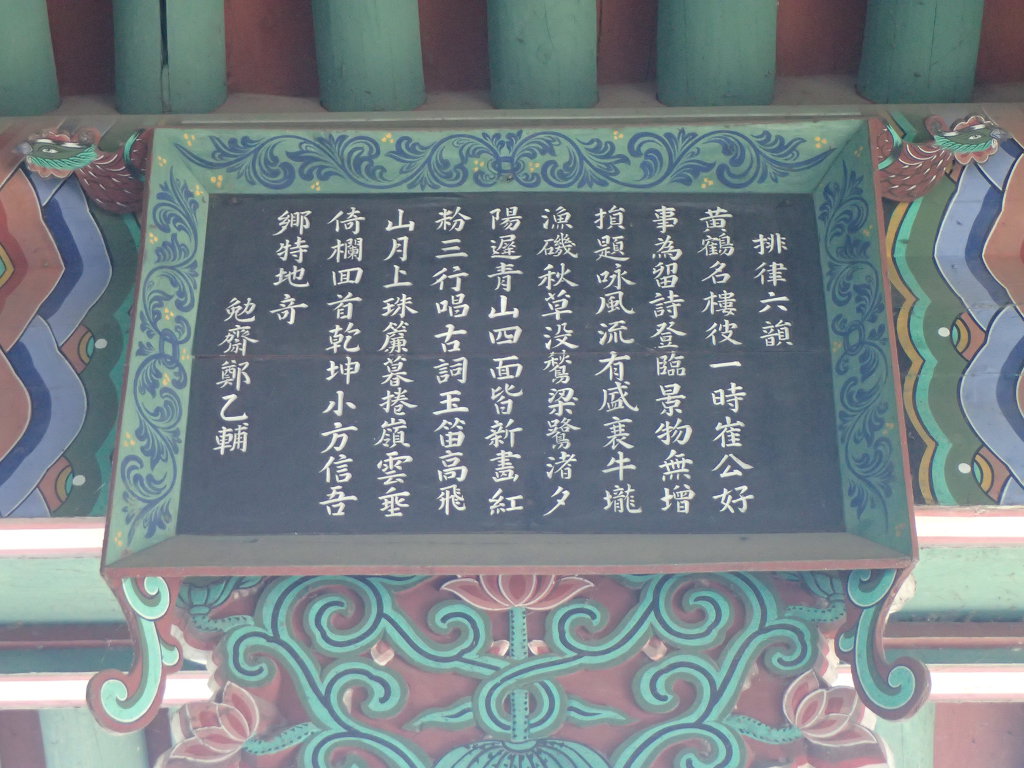 排律六韻
黃鶴名樓彼一時崔公好
事為留詩登臨景物無增
損題咏風流有盛衰牛壠
漁磯秋草没鶖梁鷺渚夕
陽遲青山四面皆新畵紅
粉三行唱古詞玉笛高飛
山月上珠簾暮捲嶺雲垂
倚欄回首乾坤小方信吾
鄉特地奇
勉齋鄭乙輔